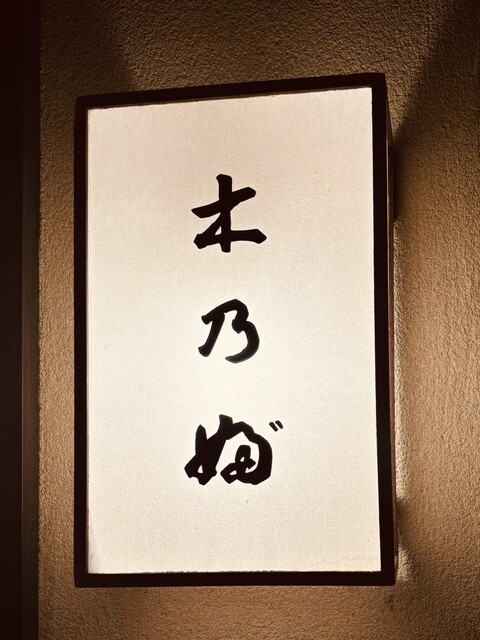 木乃婦゛